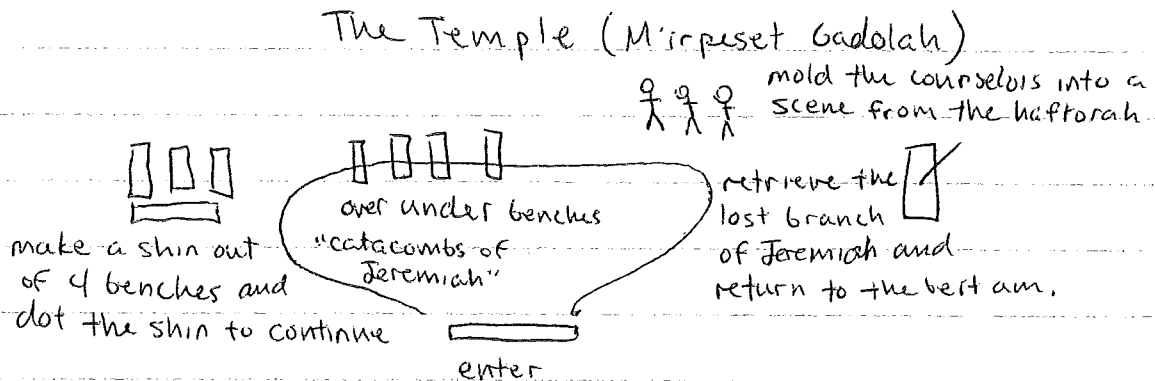 The Temple (M'irpeset Gadolah)
mold the counselors into a
scene from the haftorah
make a shin out
of 4 benches and
dot the shin to continue
over under benches
"catacombs of
Jeremiah"
retrieve the
lost branch
of Jeremiah and
return to the beit am.
enter